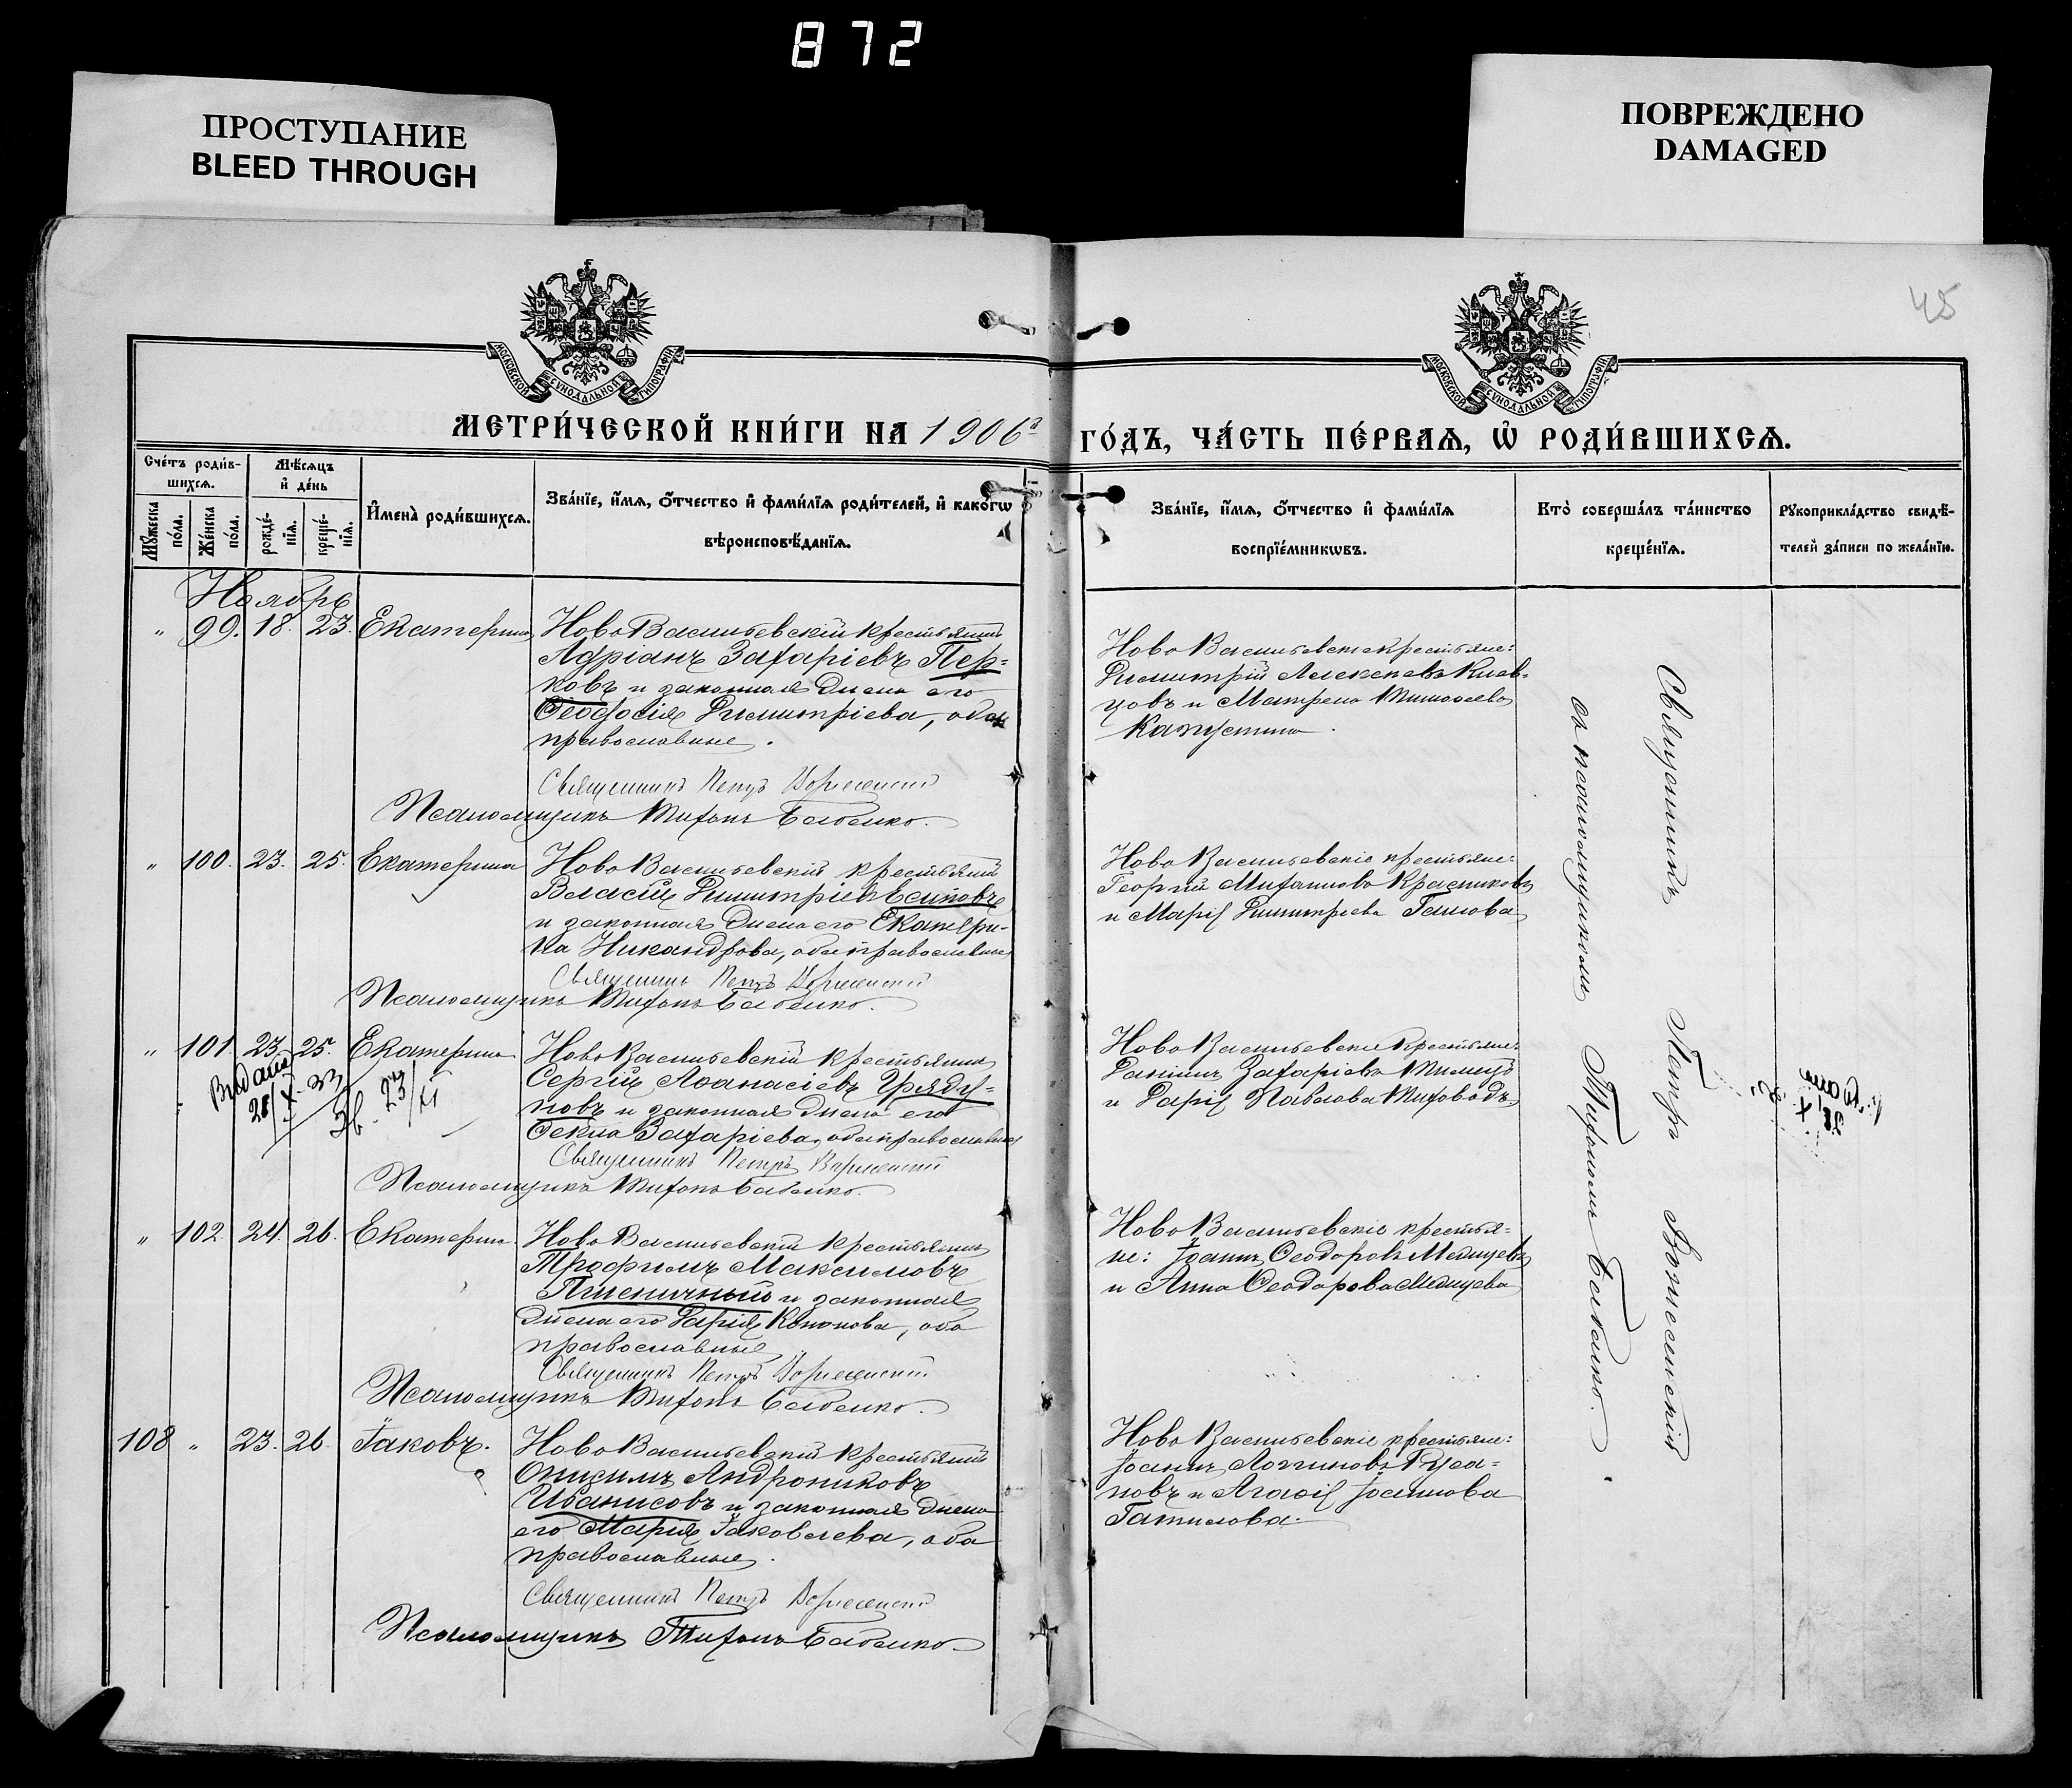 872
ПРОСТУПАНИЕ
BLEED THROUGH
ПОВРЕЖДЕНО
DAMAGED
45
МОСКОВСКОЙ СѴНОДАЛЬНОЙ ТИПОГРАФІИ
МОСКОВСКОЙ СѴНОДАЛЬНОЙ ТИПОГРАФІИ
МЕТРИ́ЧЕСКОЙ КНИ́ГИ НА 1906й
ГО́ДЪ, ЧА́СТЬ ПЕ́РВАѦ, Ѡ РОДИ́ВШИХСѦ.
Сче́тъ роди́в-
шихсѧ.
Мꙋжеска по́ла.
Же́нска по́ла.
Мѣ́сяцъ
и҆ де́нь
рожде́-
нїѧ.
креще́-
нїѧ.
И҆мена̀ роди́вшихсѧ.
Зва́нїе, и҆́мѧ, ѻ҆́тчество и҆ фами́лїѧ роди́телей, и҆ како́гѡ
вѣроисповѣ́данїѧ.
Зва́нїе, и҆́мѧ, ѻ҆́тчество и҆ фами́лїѧ
воспрїе́мникѡвъ.
Кто̀ соверша́лъ та́инство
креще́нїѧ.
Рꙋкоприкла́дство свидѣ́-
телей за́писи по жела́нїю.
Ноябрь
„ 99. 18. 23. Екатерина
НовоВасильевскій крестьянинъ
Адріанъ Захаріевъ Пер-
ковъ и законная жена его
Ѳеодосія Димитріева, оба
православные.
Священникъ Петръ Вознесенскій
Псаломщикъ Тихонъ Бабенко.
НовоВасильевскіе крестьяне:
Димитрій Алексѣевъ Кивв-
цовъ и Матрена Тимоѳеева
Капустина.
„ 100. 23. 25. Екатерина
НовоВасильевскій крестьянинъ
Власій Димитріевъ Есиповъ
и законная жена его Екатери-
на Никандрова, оба православные
Священникъ Петръ Вознесенскій
Псаломщикъ Тихонъ Бабенко.
НовоВасильевскіе крестьяне:
Георгій Михаиловъ Красниковъ
и Марія Димитріева
„ 101. 23. 25. Екатерина
Выдана
28/X. 33
Зв. 23/XI
НовоВасильевскій крестьянинъ
Сергій Аѳанасіевъ Гряду-
новъ и законная жена его
Ѳекла Захаріева, оба православные
Священникъ Петръ Вознесенскій
Псаломщикъ Тихонъ Бабенко.
НовоВасильевскіе крестьяне:
Даніилъ Захаріевъ
и Дарія Павлова
„ 102. 24. 26. Екатерина
НовоВасильевскій крестьянинъ
Трофимъ Максимовъ
Пшеничный и законная
жена его Дарія Кононова, оба
православные
Священникъ Петръ Вознесенскій
Псаломщикъ Тихонъ Бабенко.
НовоВасильевскіе крестья-
не: Іоаннъ Ѳеодоровъ
и Анна Ѳеодорова
108 „ 23. 26. Іаковъ.
НовоВасильевскій крестьянинъ
Онисимъ Андрониковъ
Иванисовъ и законная жена
его Марія Іаковлева, оба
православные.
Священникъ Петръ Вознесенскій
Псаломщикъ Тихонъ Бабенко.
НовоВасильевскіе крестьяне:
Іоаннъ Логгиновъ Руса-
новъ и Агаѳія Іоаннова
Гатилова.
Священникъ Петръ Вознесенскій
съ псаломщикомъ Тихономъ Бабенко.